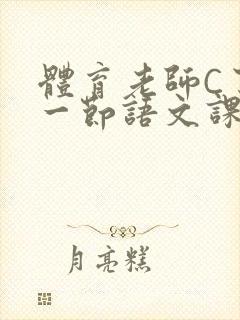 體育老師C了
一節語文課
月亮糕